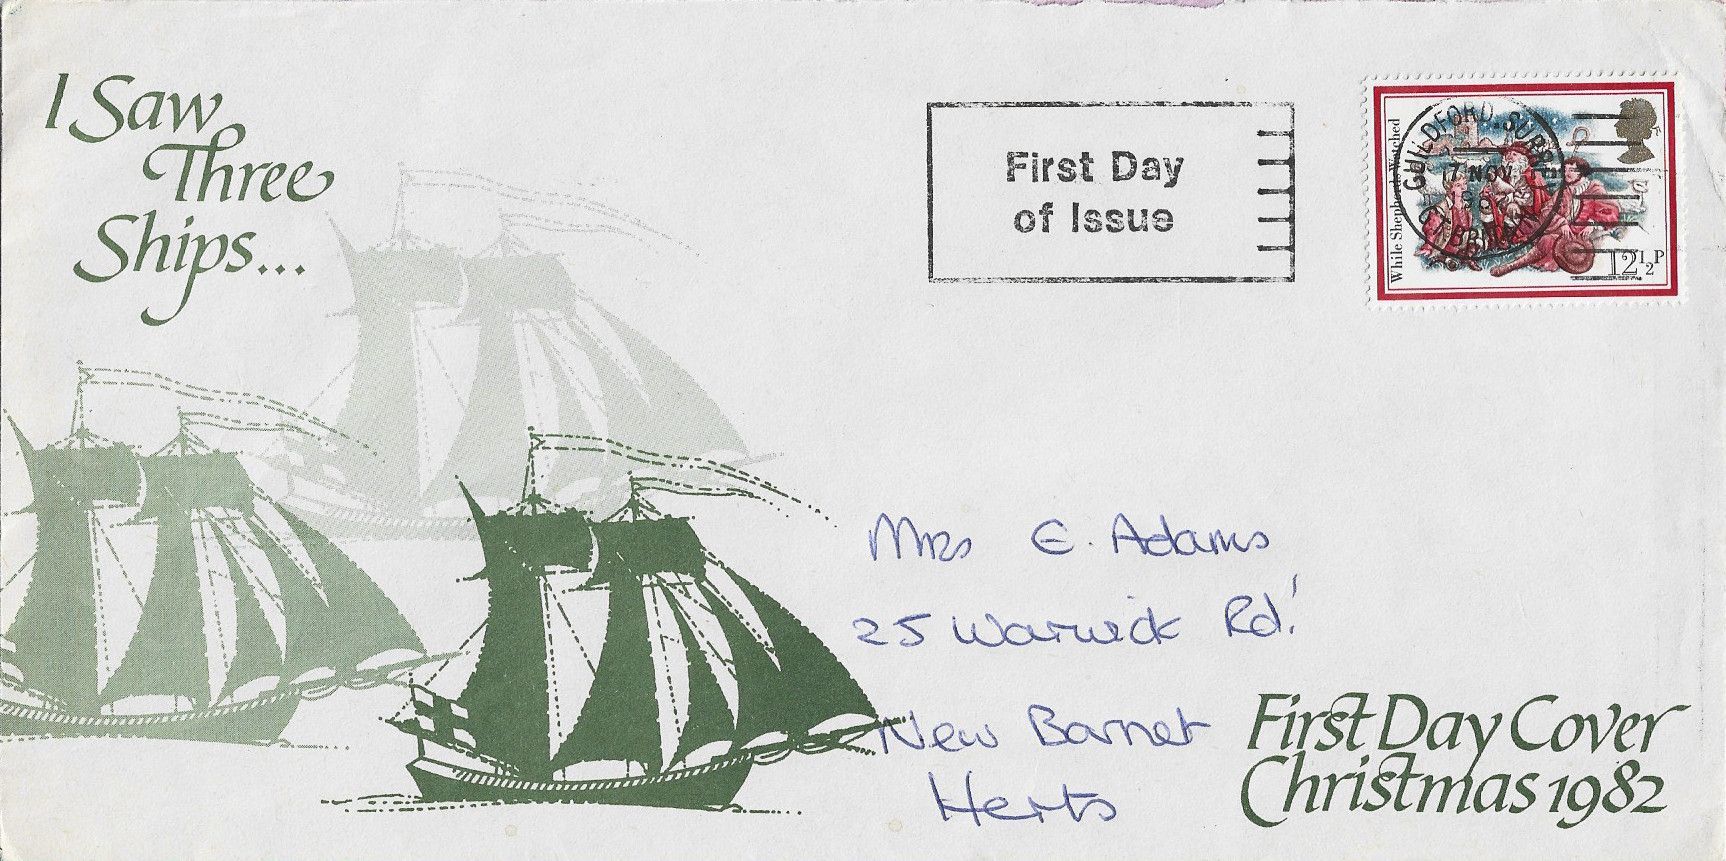 I Saw
Three
Ships...
First Day
of Issue
While Shepherds Watched
GUILDFORD. SURREY
17 NOV
1982
12½P
Mrs E. Adams
25 Warwick Rd.
New Barnet
Herts
First Day Cover
Christmas 1982